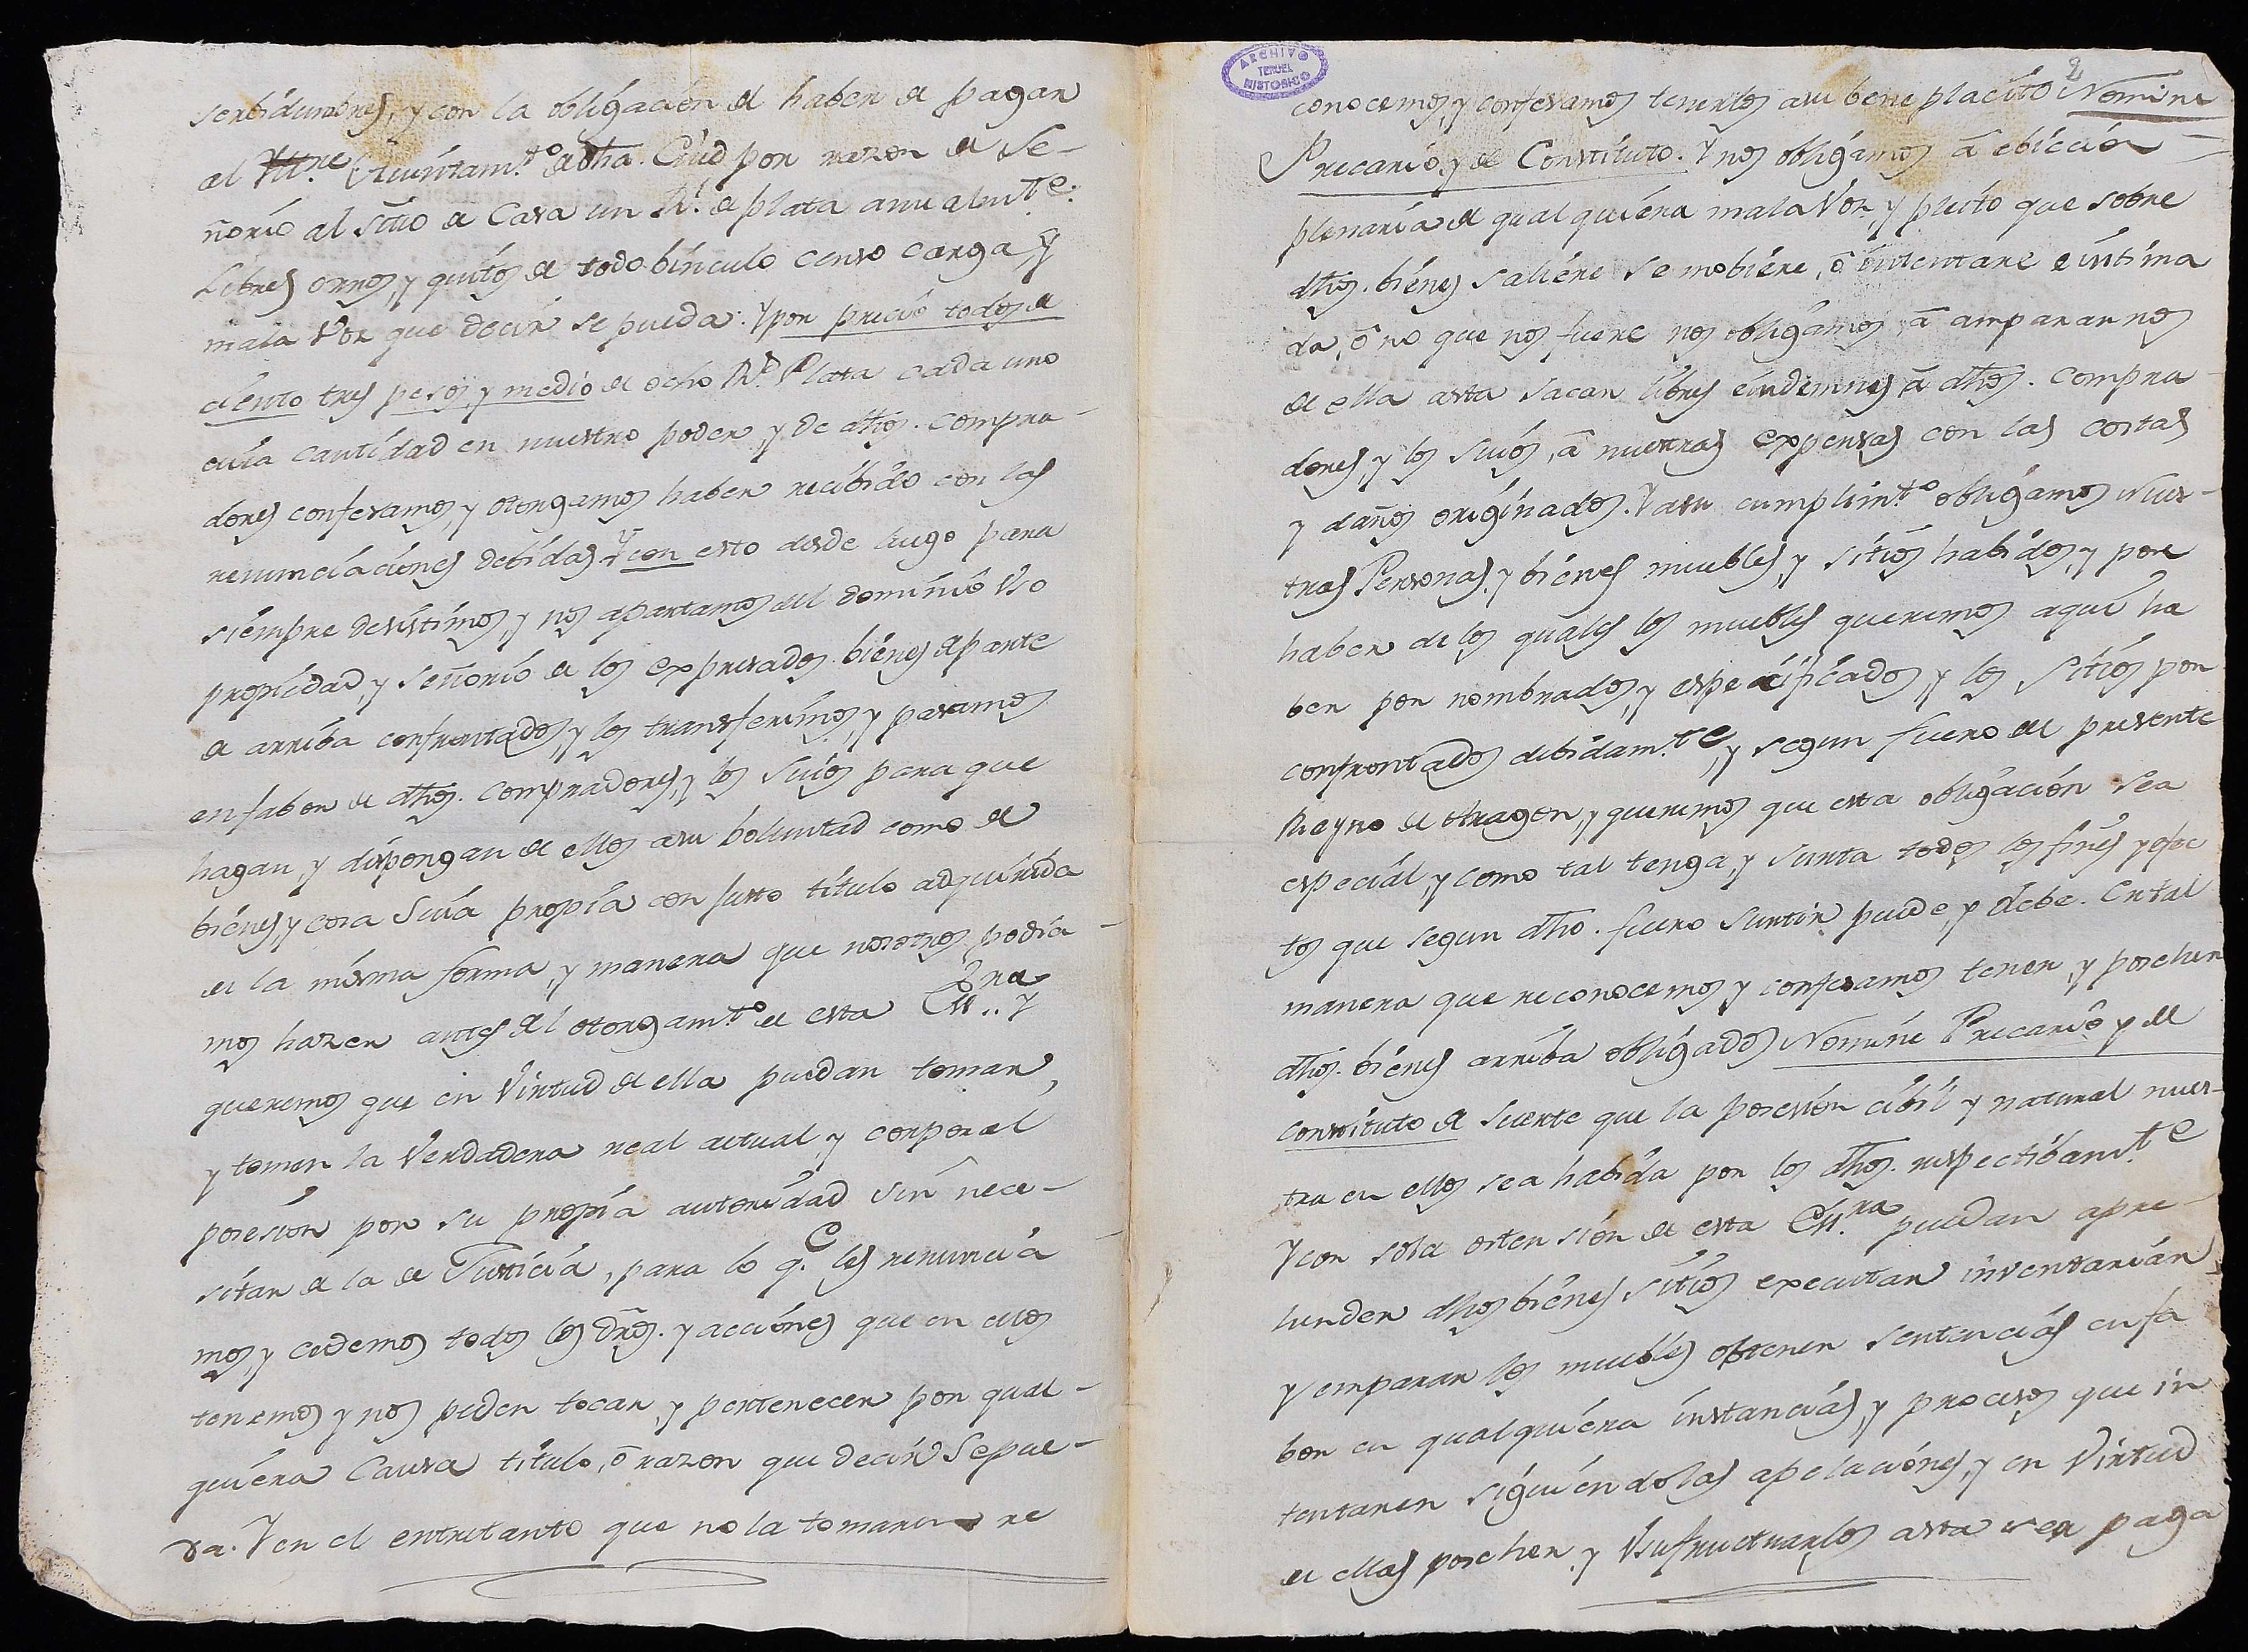 serbidumbres, y con la obligación de haber de pagar
al Iltre. Aiúntamto. de dha. Ciud por razon de Se-
ñorío al sitio de Casa un Rl. de plata anualmte.
Libres ornos, y quitos de todo bínculo censo carga, y
mala Voz que decir se pueda. Y por precio todos de
ciento tres pesos y medio de ocho Rs. Plata cada uno
cuia cantidad en nuestro poder, y de dhos. compra-
dores confesamos, y otorgamos haber recibido con las
renunciaciones debidas. Y con esto desde luego para
siempre desistimos, y nos apartamos del dominio Uso
propiedad, y señorío de los expresados bienes de parte
de arriba confrontados, y los transferimos, y pasamos
en fabor de dhos. compradores, y los suios para que
hagan, y dispongan de ellos a su boluntad como de
bienes, y cosa Suia propia con justo título adquirida
de la misma forma, y manera que nosotros podía-
mos hazer antes del otorgamto. de esta Essra.. y
queremos que en Virtud de ella puedan tomar,
y tomen la Verdadera real actual, y corporal
posesion por su propia autoridad sin nece-
sitar de la de Justicia, para lo qe. les renuncia-
mos, y cedemos todos los dros. y acciones que en ellos
tenemos y nos peden tocar, y pertenecer por qual-
quiera Causa título, ó razon que decir Se pue-
da. Y en el entretanto que no la tomaren re
ARCHIVO
TERUEL
HISTORICO
2
conocemos, y confesamos tenerlos a su bene placito Nomine
Precario, y de Constituto. Y nos obligamos á ebiccion
plenaria de qualquiera mala Voz, y pleito que sobre
dhos. bienes saliere se mobiere, ó intentare e intima
da, ó no que nos fuere nos obligamos á ampararnos
de ella asta sacar libres e indemnes á dhos. compra-
dores, y los suios, á nuestras expensas con las costas
y daños originados. Y a su cumplimto. obligamos Nues-
tras Personas, y bienes muebles, y sitios habidos, y por
haber de los quales los muebles queremos aqui ha
ber por nombrados, y especificados, y los sitios por
confrontados debidamte., y segun fuero del presente
Reyno de Aragon, y queremos que esta obligación sea
especial, y como tal tenga, y surta todos los fines y efec
tos que segun dho. fuero surtir puede, y debe. En tal
manera que reconocemos y confesamos tener, y posehir
dhos. bienes arriba obligados Nomine Precario y de
constituto de suerte que la posesion cibil y natural nues-
tra en ellos sea habida por los dhos. respectibamte.
Y con sola ostension de esta Essra. puedan apre-
hender dhos bienes sitios executar inventariar
y emparar los muebles obtener sentencias en fa
bor en qualquiera instancias, y procesos que in
tentaren siguiendo las apelaciones, y en Virtud
de ellas posehir y Usufructuarlos asta ser paga